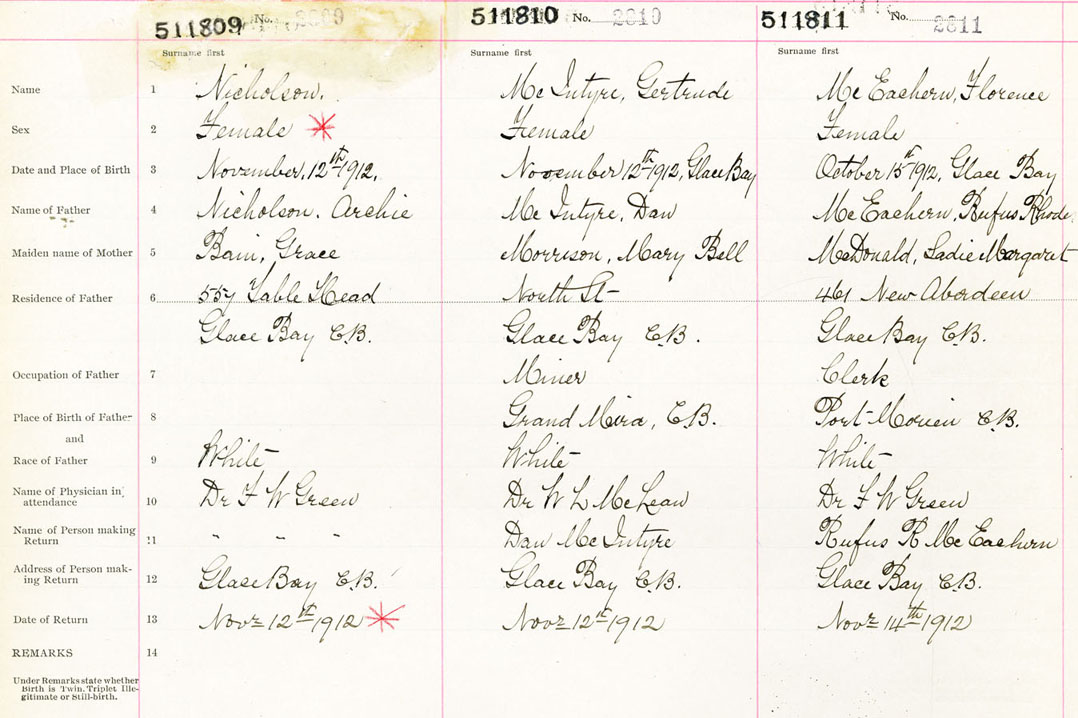 511809 No. 2809
511810 No. 2810
511811 No. 2811
Surname first Surname first Surname first
Name 1 Nicholson. Mc Intyre, Gertrude Mc Eachern, Florence
Sex 2 Female Female Female
Date and Place of Birth 3 November, 12th 1912, November 12th 1912, Glace Bay October 15th 1912, Glace Bay
Name of Father 4 Nicholson. Archie Mc Intyre, Dan Mc Eachern, Rufus Rhodes
Maiden name of Mother 5 Bain, Grace Morrison, Mary Bell McDonald, Sadie Margaret
Residence of Father 6 557 Table Head North St 461 New Aberdeen
Glace Bay C.B. Glace Bay C.B. Glace Bay C.B.
Occupation of Father 7 Miner Clerk
Place of Birth of Father 8 Grand Mira, C.B. Port Morien C.B.
and
Race of Father 9 White White White
Name of Physician in attendance 10 Dr F W Green Dr W L McLean Dr F W Green
Name of Person making Return 11 " " " Dan Mc Intyre Rufus R Mc Eachern
Address of Person mak-ing Return 12 Glace Bay C.B. Glace Bay C.B. Glace Bay C.B.
Date of Return 13 Novr 12th 1912 Novr 12th 1912 Novr 14th 1912
REMARKS 14
Under Remarks state whether
Birth is Twin, Triplet Ille-
gitimate or Still-birth.